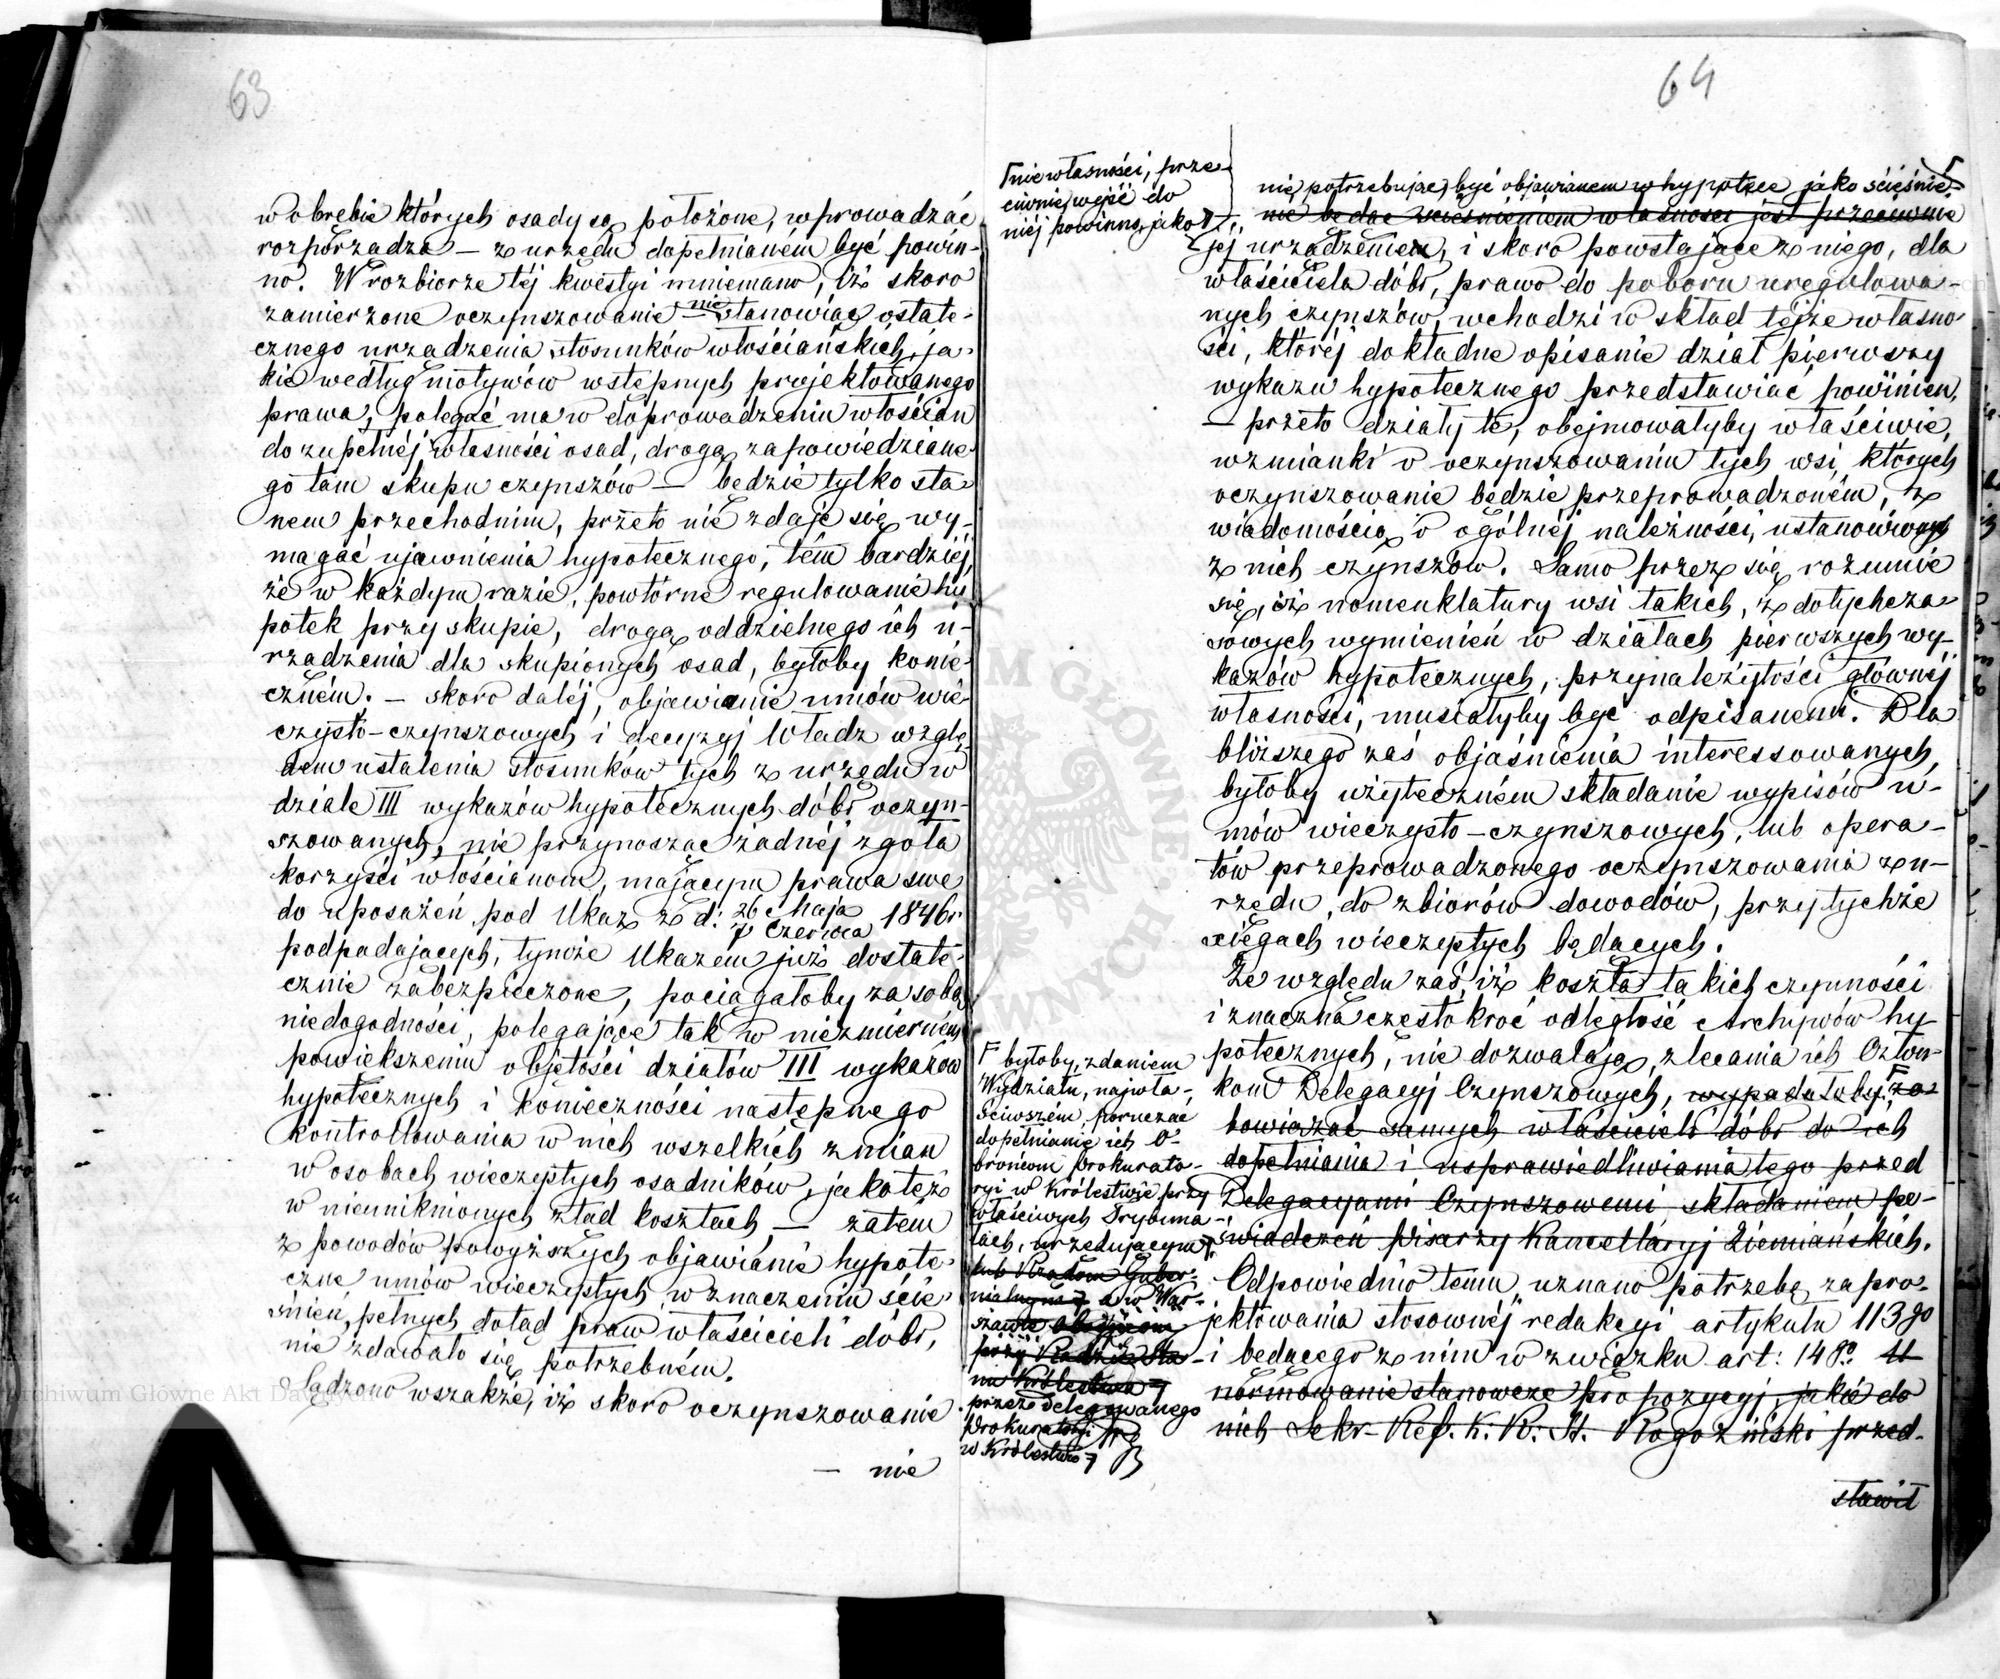 63
w obrębie których osady są położone, wprowadzać
rozporządza — z urzędu dopełnianém być powin-
no. W rozbiorze téj kwestyi mniemano, iż skoro
zamierzone oczynszowanie nie stanowiąc ostate-
cznego urządzenia stosunków włościańskich, ja-
kie według motywów wstępnych projektowanego
prawa, polegać ma w doprowadzeniu włościan
do zupełnéj własności osad, drogą zapowiedziane-
go tam skupu czynszów — będzie tylko sta-
nem przechodnim, przeto nie zdaje się wy-
magać ujawnienia hypotecznego, tém bardziéj,
że w każdym razie, powtórne regulowanie hy-
potek przy skupie, drogą oddzielnego ich u-
rządzenia dla skupionych osad, byłoby konie-
czném. — skoro daléj, objawianie umów wie-
czysto-czynszowych i decyzyj Władz wzglę-
dem ustalenia stosunków tych z urzędu w
dziale III wykazów hypotecznych dóbr oczyn-
szowanych, nie przynosząc żadnéj zgoła
korzyści włościanom, mającym prawa swe
do uposażeń pod Ukaz z d: 26 Maja / 7 Czerwca 1846 r.
podpadających, tymże Ukazem już dostate-
cznie zabezpieczone, pociągałoby za sobą
niedogodności, polegające tak w niezmierném
powiększeniu objętości działów III wykazów
hypotecznych i konieczności następnego
kontrollowania w nich wszelkich zmian
w osobach wieczystych osadników, jakoteż
w nieuniknionych ztąd kosztach — zatém
z powodów powyższych objawianie hypote-
czne umów wieczystych, w znaczeniu ście-
śnień, pełnych dotąd praw właścicieli dóbr,
nie zdawało się potrzebném.
Sądzono wszakże, iż skoro oczynszowanie
— nie
64
nie własności, prze-
ciwnie wejść do
niéj powinno, jako
nie potrzebując być objawianem w hypotece jako ścieśnie-
nie będąc ścieśnieniem własności jest przeciwnie
jéj urządzeniem, i skoro powstające z niego, dla
właściciela dóbr, prawo do poboru uregulowa-
nych czynszów, wchodzi w skład tejże własno-
ści, któréj dokładne opisanie dział pierwszy
wykazu hypotecznego przedstawiać powinien,
— przeto działy te, obejmowałyby właściwie,
wzmianki o oczynszowaniu tych wsi, których
oczynszowanie będzie przeprowadzoném, z
wiadomością o ogólnéj należności, ustanowionych
z nich czynszów. Samo przez się rozumie
się, iż nomenklatury wsi takich, z dotychcza-
sowych wymienień w działach pierwszych wy-
kazów hypotecznych, przynależytości głównéj
własności, musiałyby być odpisanemi. Dla
bliższego zaś objaśnienia interessowanych,
byłoby użyteczném składanie wypisów u-
mów wieczysto-czynszowych, lub opera-
tów przeprowadzonego oczynszowania z u-
rzędu, do zbiorów dowodów, przy tychże
xięgach wieczystych będących.
Ze względu zaś, iż koszta takich czynności
i znaczna częstokroć odległość Archywów hy-
potecznych, nie dozwalają zlecania ich Człon-
kom Delegacyj Czynszowych, wypadałoby zo-
bowiązać samych właścicieli dóbr do ich
dopełniania i usprawiedliwiania tego przed
Delegacyami Czynszowemi, składaniem po-
świadczeń Pisarzy Kancellaryj Ziemiańskich.
Odpowiednio temu, uznano potrzebę zapro-
jektowania stosownéj redakcyi artykułu 113go
i będącego z nim w związku art: 148o. U-
normowanie stanowcze propozycyj, jakie do
nich Sekr. Ref. K. R. St. Rogoziński przed-
stawił
byłoby, zdaniem
Wydziału, najwła-
ściwszém, poruczać
dopełnianie ich O-
brońcom Prokurato-
ryi w Królestwie przy
właściwych Trybuna-
łach, urzędującym
lub Rządom Guber-
nialnym a w War-
szawie obrońcom
przy Radzie Sta-
nu Królestwa
przez Delegowanego
Prokuratoryi
w Królestwie